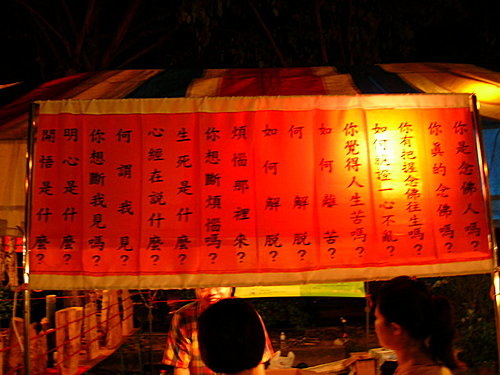 你是念佛人嗎?
你真的念佛嗎?
你有把握念佛往生嗎?
如何證一心不亂?
你覺得人生苦嗎?
如何離苦?
何解脫?
如何解脫?
煩惱那裡來?
你想斷煩惱嗎?
生死是什麼?
心經在說什麼?
何謂我見?
你想斷我見嗎?
明心是什麼?
開悟是什麼?